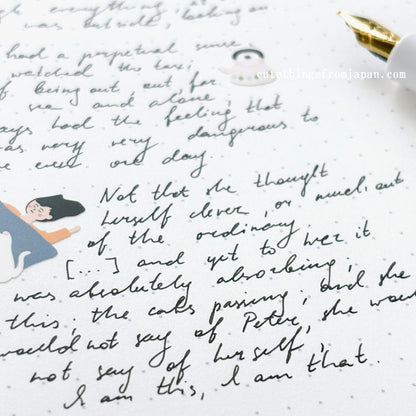 everything; at
was outside, looking on
had a perpetual sense
watched the taxi;
of being out, out, far
sea and alone;
ays had the feeling that
as very, very dangerous to
ve even one day.
Not that she thought
herself clever, or much out
of the ordinary
[...] and yet to her it
was absolutely absorbing;
this; the cabs passing; and she
would not say of Peter, she wou
not say of herself,
I am this, I am that.
cutethingsfromjapan.com